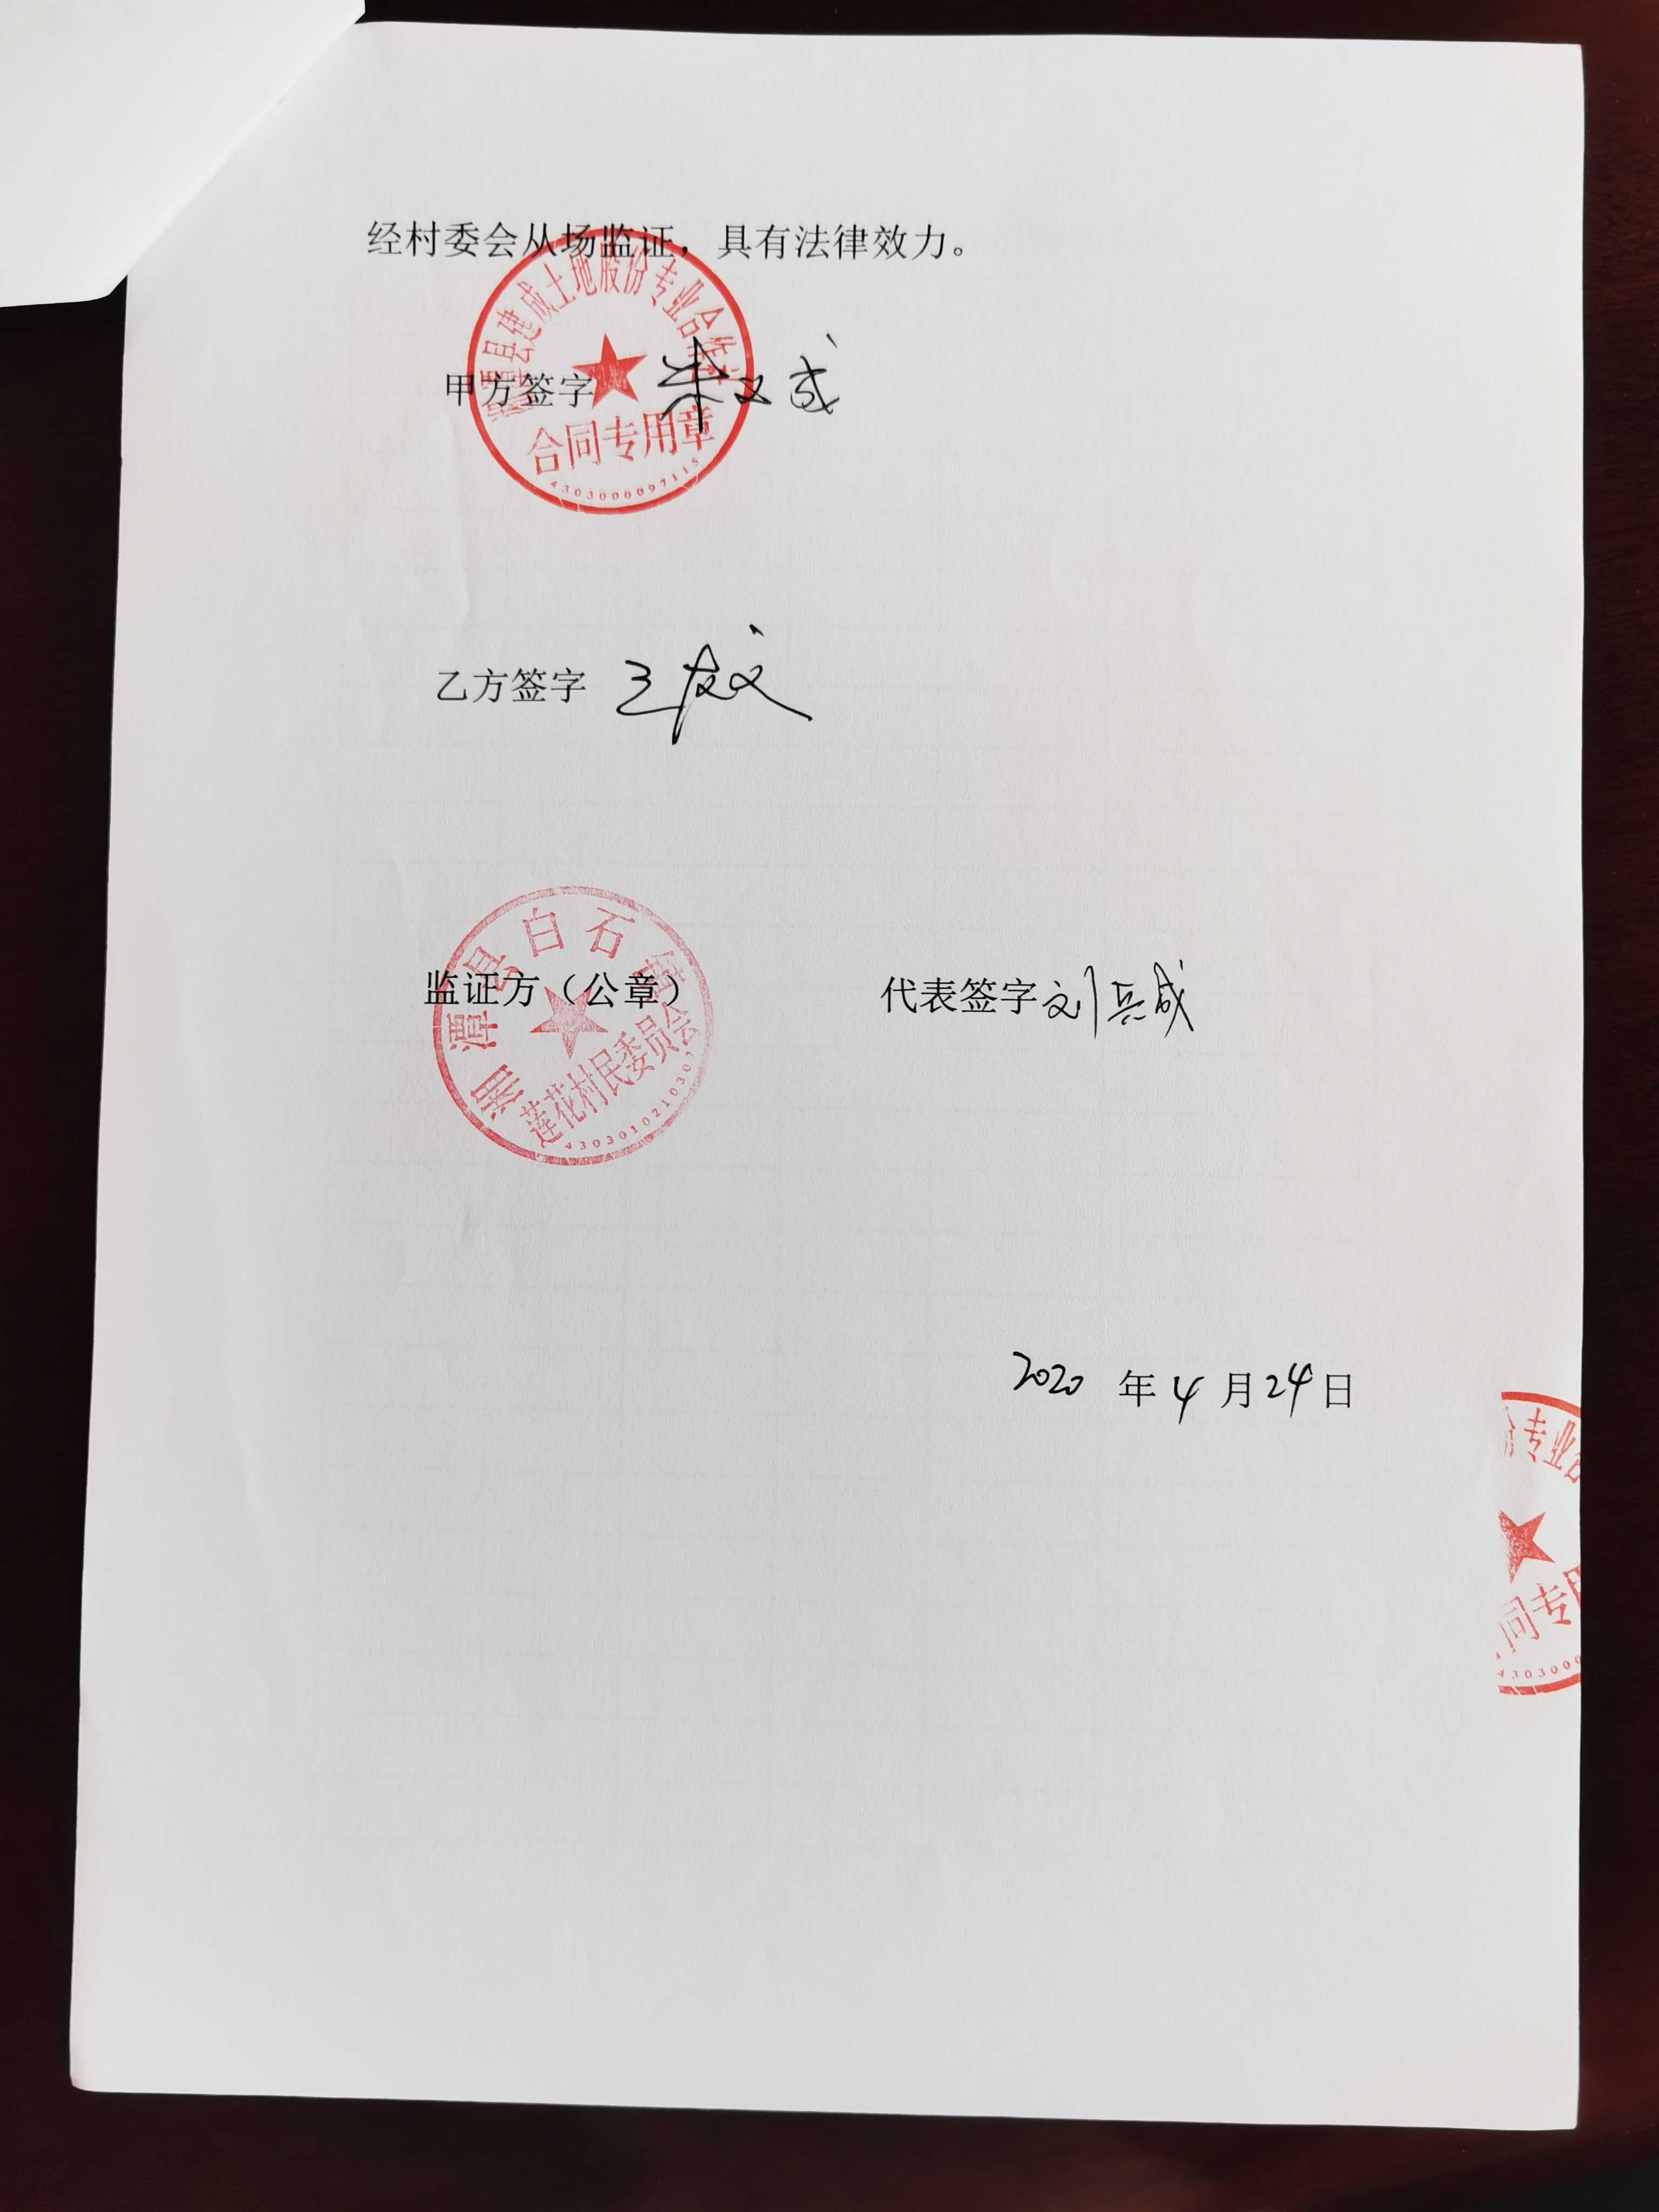 经村委会从场监证，具有法律效力。
湘潭县建成土地股份专业合作社
甲方签字 朱文成
合同专用章
4303000097115
乙方签字 王
湘潭县白石镇
监证方（公章） 代表签字 刘兵成
莲花村民委员会
4303010210307
2020 年 4 月 24 日
份专业合
同专用
4303000